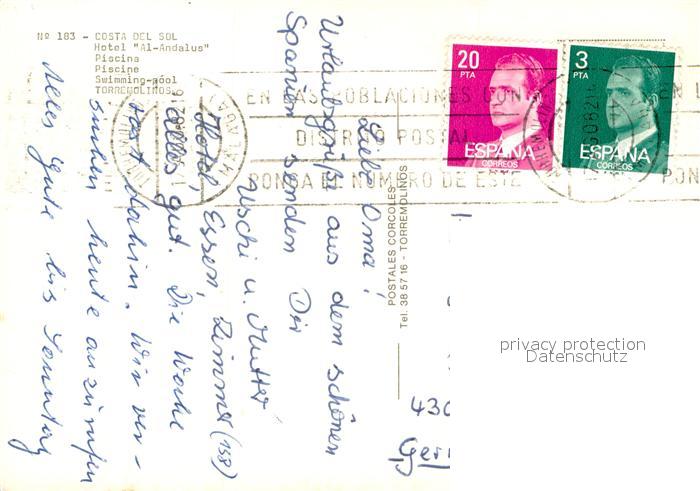 Nº 183 - COSTA DEL SOL
Hotel "Al-Andalus"
Piscina
Piscine
Swimming-pool
TORREMOLINOS
Liebe Oma!
Urlaubsgrüße aus dem schönen
Spanien senden Dir
Uschi u. Mutter
Hotel, Essen, Zimmer (158)
alles gut. Die Woche
fast dahin. Wir ver-
suchen heute anzurufen
Alles Gute bis Sonntag
POSTALES CORCOLES
Tel. 38 57 16 - TORREMOLINOS
EN LAS POBLACIONES CON
DISTRITO POSTAL
PONGA EL NUMERO DE ESTE
EN L
PON
MALAGA
20
PTA
ESPAÑA
CORREOS
3
PTA
ESPAÑA
CORREOS
privacy protection
Datenschutz
430
Ger